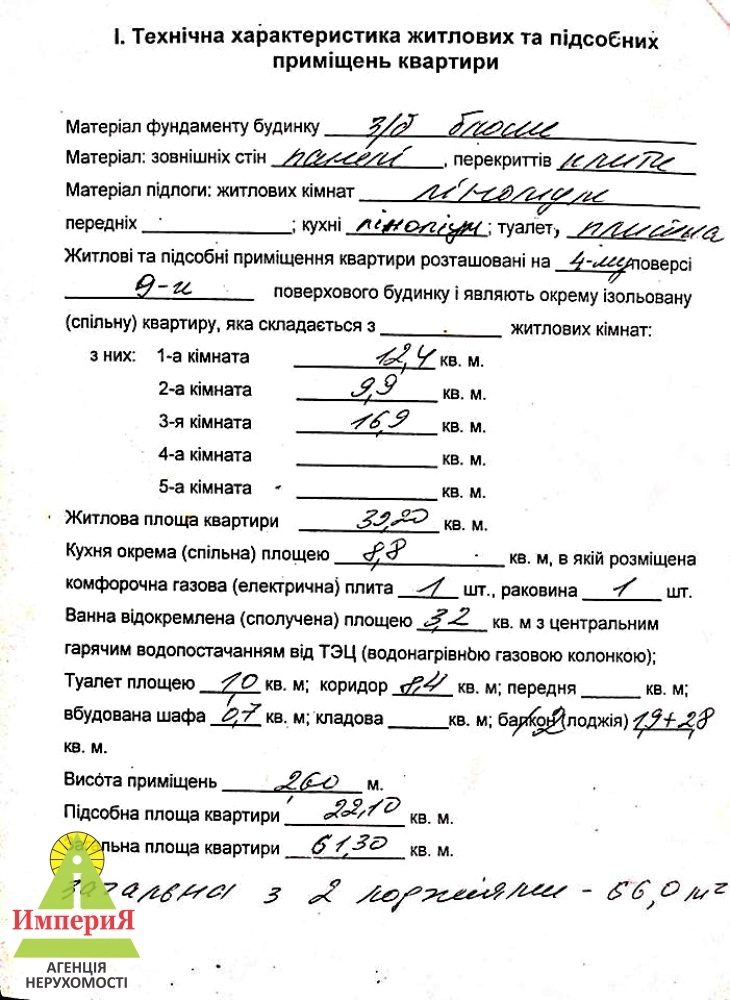 І. Технічна характеристика житлових та підсобних
приміщень квартири
Матеріал фундаменту будинку з/б блоки
Матеріал: зовнішніх стін панелі, перекриттів плити
Матеріал підлоги: житлових кімнат лінолеум
передніх ; кухні лінолеум; туалет, плитка
Житлові та підсобні приміщення квартири розташовані на 4-му поверсі
9-и поверхового будинку і являють окрему ізольовану
(спільну) квартиру, яка складається з житлових кімнат:
з них: 1-а кімната 12,4 кв. м.
2-а кімната 9,9 кв. м.
3-я кімната 16,9 кв. м.
4-а кімната кв. м.
5-а кімната кв. м.
Житлова площа квартири 39,20 кв. м.
Кухня окрема (спільна) площею 8,8 кв. м, в якій розміщена
комфорочна газова (електрична) плита 1 шт., раковина 1 шт.
Ванна відокремлена (сполучена) площею 3,2 кв. м з центральним
гарячим водопостачанням від ТЭЦ (водонагрівною газовою колонкою);
Туалет площею 1,0 кв. м; коридор 8,4 кв. м; передня кв. м;
вбудована шафа 0,7 кв. м; кладова кв. м; балкон 2 (лоджія) 1,9+2,8
кв. м.
Висота приміщень 2,60 м.
Підсобна площа квартири 22,10 кв. м.
Загальна площа квартири 61,30 кв. м.
загальна з 2 лоджіями - 66,0 м²
ИмпериЯ
АГЕНЦІЯ
НЕРУХОМОСТІ